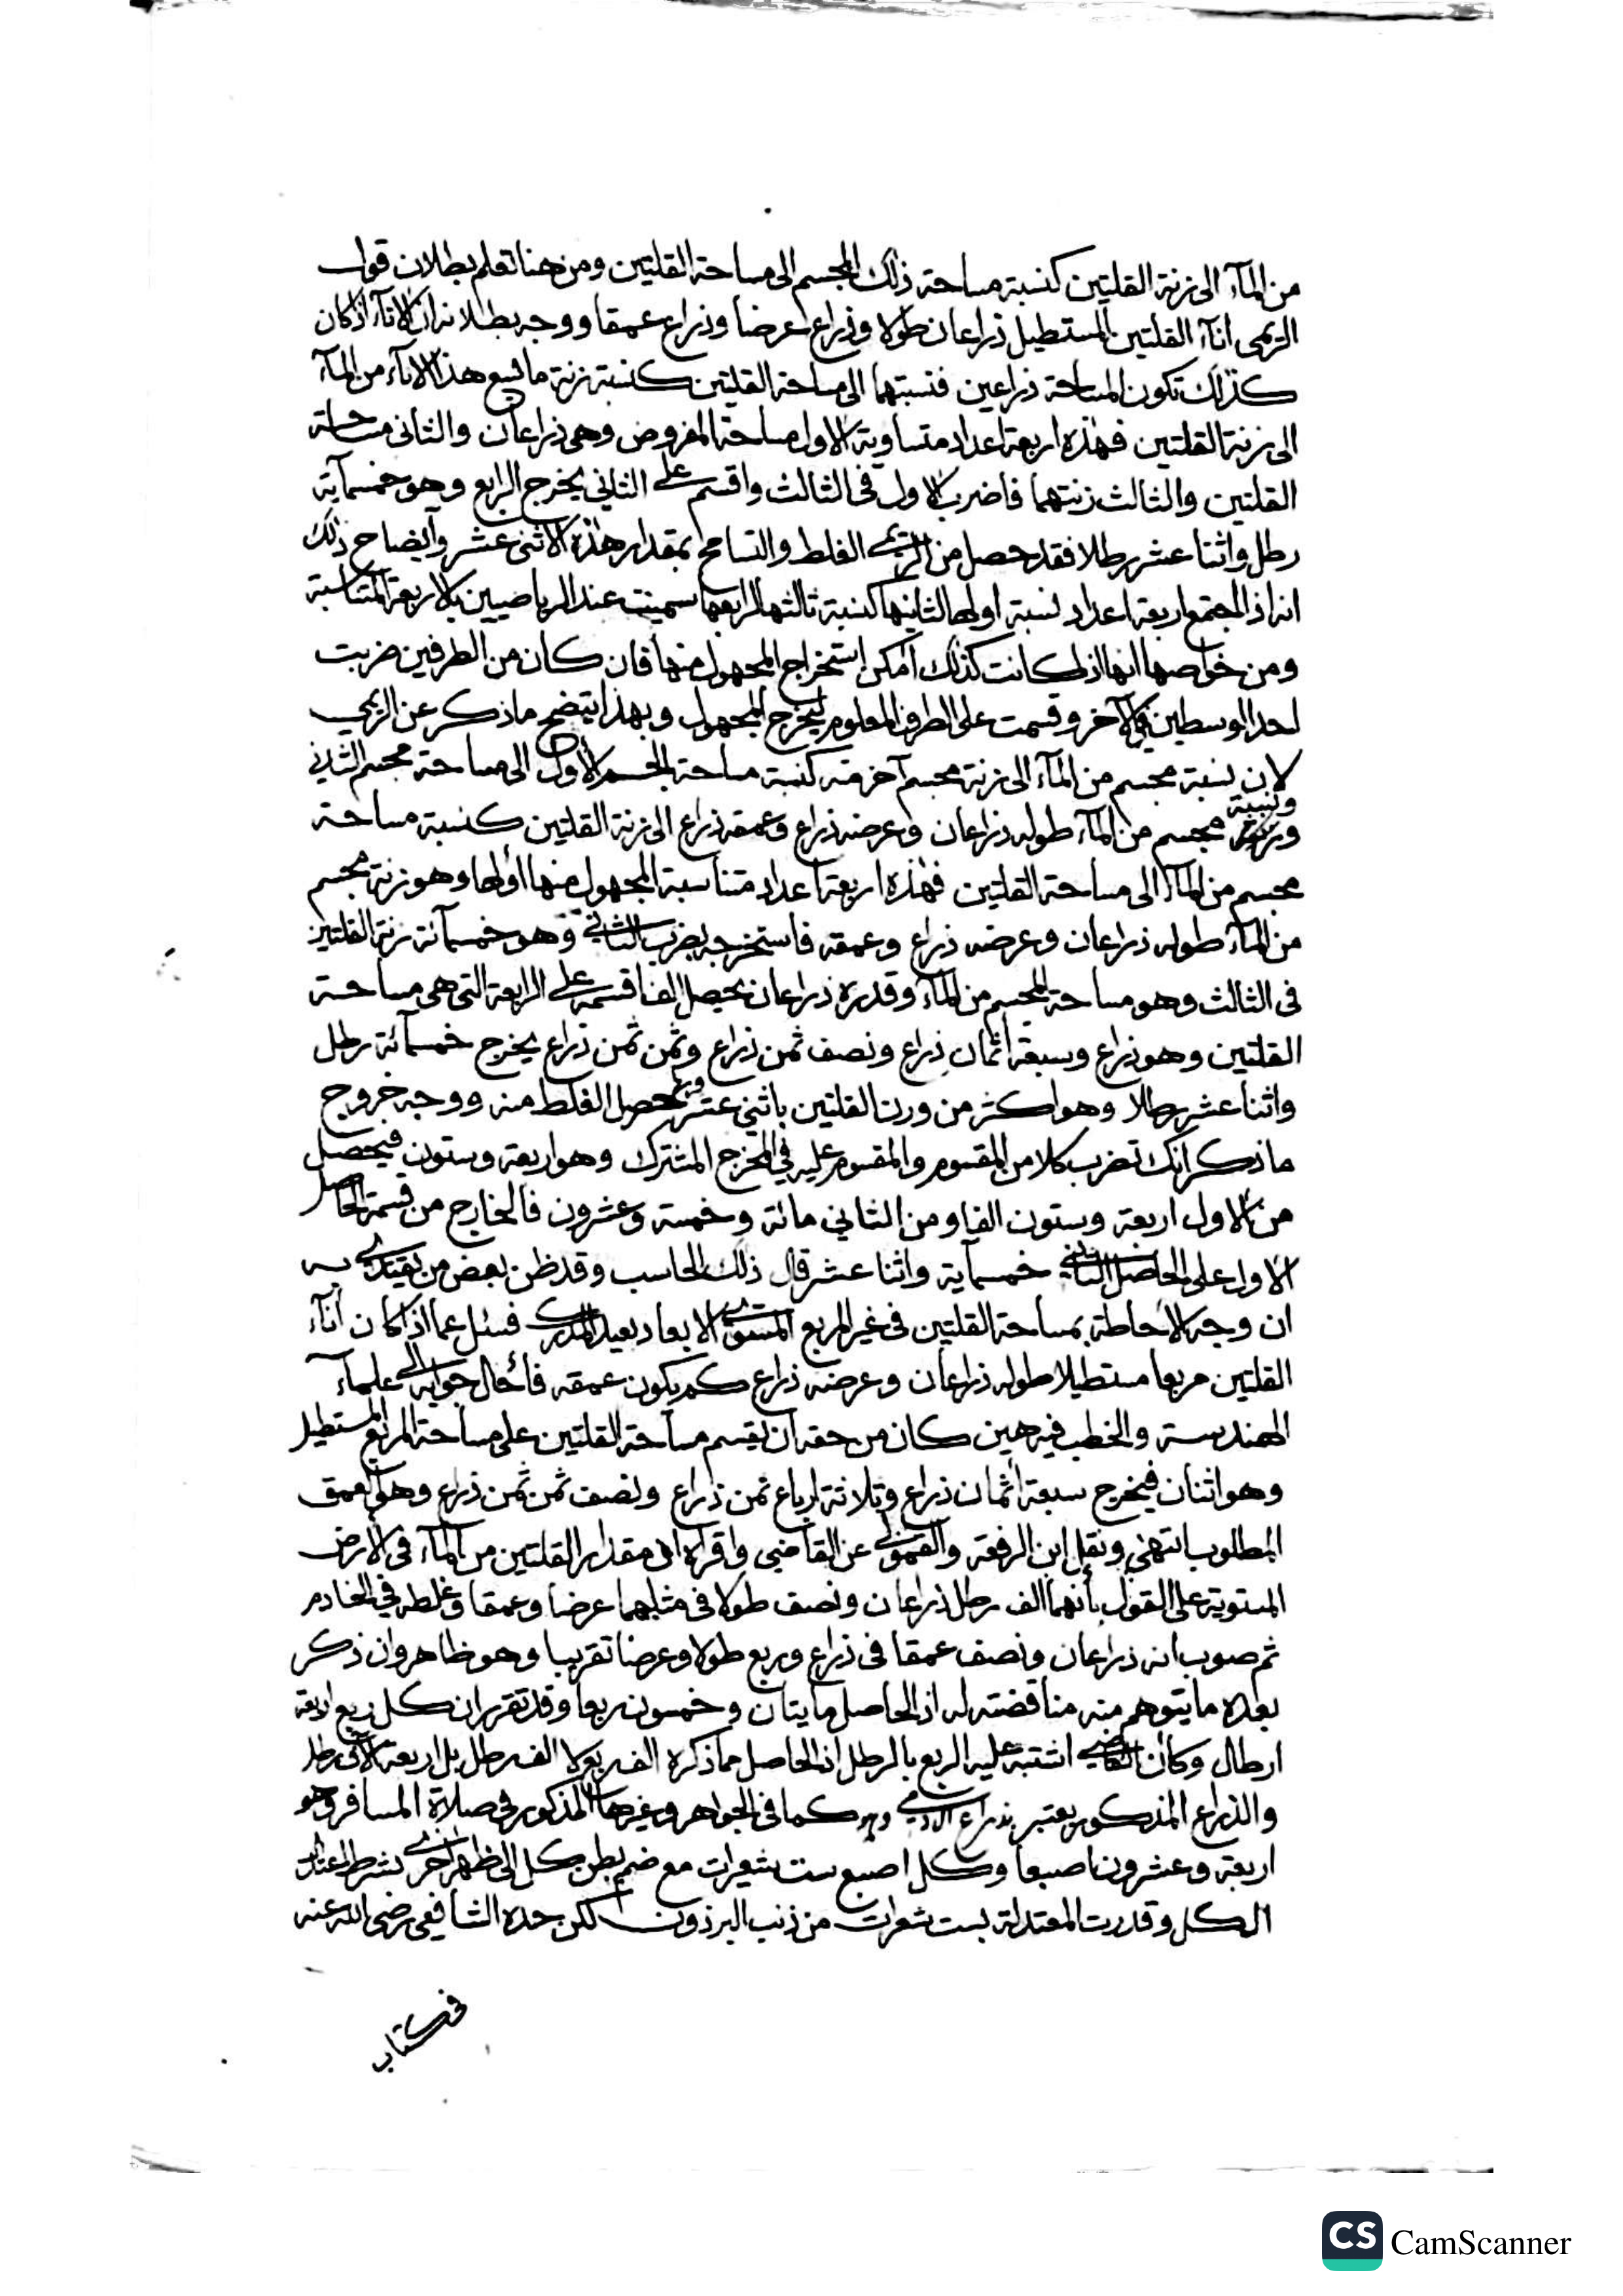 من المآء الى زنة القلتين كنسبة مساحة ذلك المجسم الى مساحة القلتين ومن هنا تعلم بطلان قول
الريمى انآء القلتين المستطيل ذراعان طولا وذراع عرضا وذراع عمقا ووجه بطلانه ان الانآء اذا كان
كذلك تكون المساحة ذراعين فنسبتهما الى مساحة القلتين كنسبة زنة ما يسع هذا الانآء من المآء
الى زنة القلتين فهذه اربعة اعداد متساوية الاول مساحة المفروض وهى ذراعان والثانى مساحة
القلتين والثالث زنتهما فاضرب الاول فى الثالث واقسم على الثاني يخرج الرابع وهو خمسمآية
رطل واثنا عشر رطلا فقد حصل من الريمى الغلط والتسامح بمقدار هذه الاثنى عشر وايضاح ذلك
انه اذا اجتمع اربعة اعداد نسبة اولها لثانيها كنسبة ثالثها لرابعها سميت عند الرياضيين بالاربعة المتناسبة
ومن خواصها انها اذا كانت كذلك امكن استخراج المجهول منها فان كان من الطرفين ضربت
احد الوسطين في الآخر وقسمت على الطرف المعلوم ليخرج المجهول وبهذا يتضح ما ذكر عن الريمي
لان نسبة مجسم من المآء الى زنة مجسم آخر منه كنسبة مساحة الجسم الاول الى مساحة مجسم الثاني
ونسبة
مجسم من المآء طوله ذراعان وعرضه ذراع وعمقه ذراع الى زنة القلتين كنسبة مساحة
مجسم من المآء الى مساحة القلتين فهذه اربعة اعداد متناسبة المجهول منها اولها وهو زنة مجسم
من المآء طوله ذراعان وعرضه ذراع وعمقه فاستخرجه بضرب الثاني وهو خمسمآئة زنة القلتين
فى الثالث وهو مساحة المجسم من المآء وقدره ذراعان يحصل الف اقسمه على الرابعة التى هى مساحة
القلتين وهو ذراع وسبعة اثمان ذراع ونصف ثمن ذراع وثمن ثمن ذراع يخرج خمسمآئة رطل
واثنا عشر رطلا وهو اكثر من وزن القلتين باثني عشر حصل الغلط منه ووجه خروج
ما ذكر انك تضرب كلا من المقسوم والمقسوم عليه في المخرج المشترك وهو اربعة وستون فيحصل
من الاول اربعة وستون الفا ومن الثاني مائة وخمسة وعشرون فالخارج من قسمة الحاصل
الاول على الحاصل الثاني خمسمآية واثنا عشر قال ذلك الحاسب وقد ظن بعض من يقتدى به
ان وجه الاحاطة بمساحة القلتين فى غير المربع المستوى الابعاد بعيد المدرك فسئل عما اذا كان انآء
القلتين مربعا مستطيلا طوله ذراعان وعرضه ذراع كم يكون عمقه فأحال جوابه الى علمآء
الهندسة والخطب فيه هين كان من حقه ان يقسم مساحة القلتين على مساحة المربع المستطيل
وهو اثنان فيخرج سبعة اثمان ذراع وثلاثة ارباع ثمن ذراع ونصف ثمن ثمن ذراع وهو العمق
المطلوب انتهى ونقل ابن الرفعة والقمولى عن القاضي واقراه ان مقدار القلتين من المآء فى الارض
المستوية على القول بأنهما الف رطل ذراعان ونصف طولا فى مثلهما عرضا وعمقا وغلطه في الخادم
ثم صوب انه ذراعان ونصف عمقا فى ذراع وربع طولا وعرضا تقريبا وهو ظاهر وان ذكر
بعده ما يتوهم منه مناقضته له اذ الحاصل مايتان وخمسون ربعا وقد تقرر ان كل ربع اربعة
ارطال وكأن القاضي اشتبه عليه الربع بالرطل اذ الحاصل مما ذكره الف ربع لا الف رطل بل اربعة الآف رطل
والذراع المذكور يعتبر بذراع الادمي كما فى الجواهر وغيرها المذكور فى صلاة المسافر وهو
اربعة وعشرون اصبعا وكل اصبع ست شعيرات مع ضم بطن كل الى ظهر اخرى بشرط اعتدال
الكل وقدرت المعتدلة بست شعرات من ذنب البرذون لكن حده الشافعي رضى الله عنه
فى كتاب
CS CamScanner